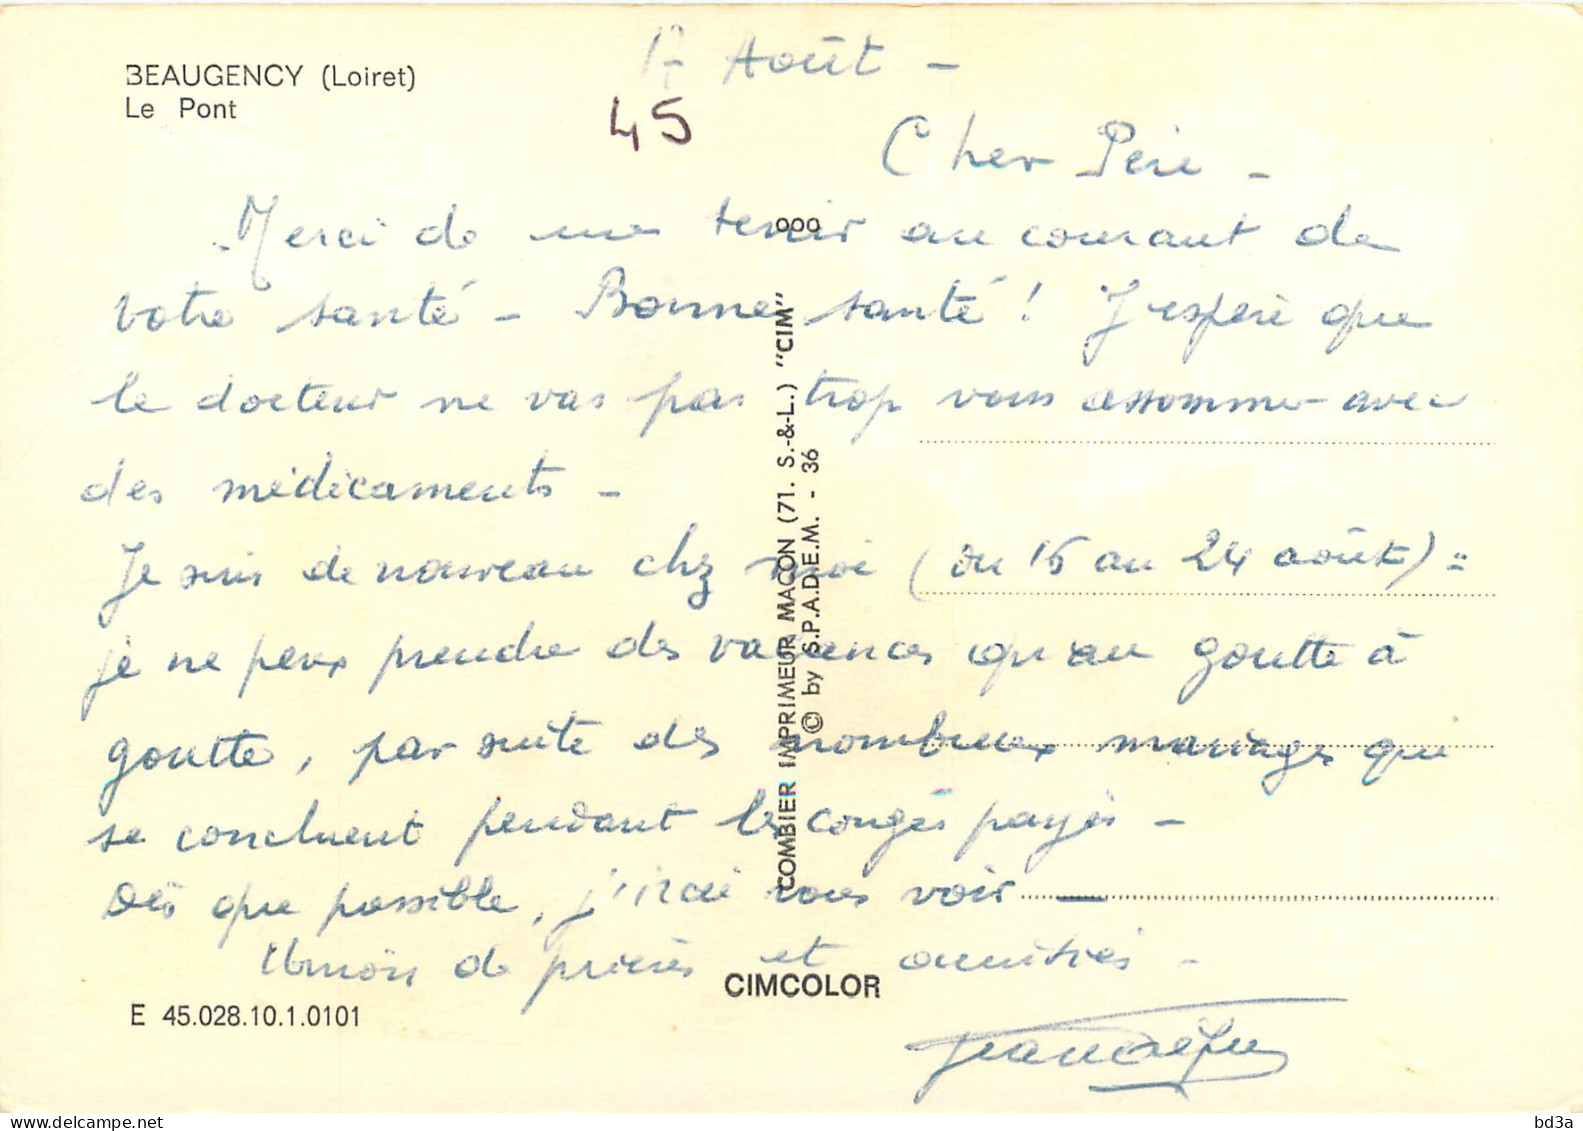 BEAUGENCY (Loiret)
Le Pont
17 Août -
45
Cher Père -
Merci de me tenir au courant de
votre santé - Bonne santé ! J'espère que
le docteur ne vas pas trop vous assommer avec
des médicaments -
Je suis de nouveau chez moi (du 16 au 24 août) :
je ne peux prendre des vacances qu'au goutte à
goutte, par suite des nombreux mariages qui
se concluent pendant les congés payés -
Dès que possible, j'irai vous voir —
Union de prières et amitiés -
COMBIER IMPRIMEUR MACON (71. S.-&-L.) "CIM"
© by S.P.A.D.E.M. - 36
ooo
CIMCOLOR
E 45.028.10.1.0101
bd3a